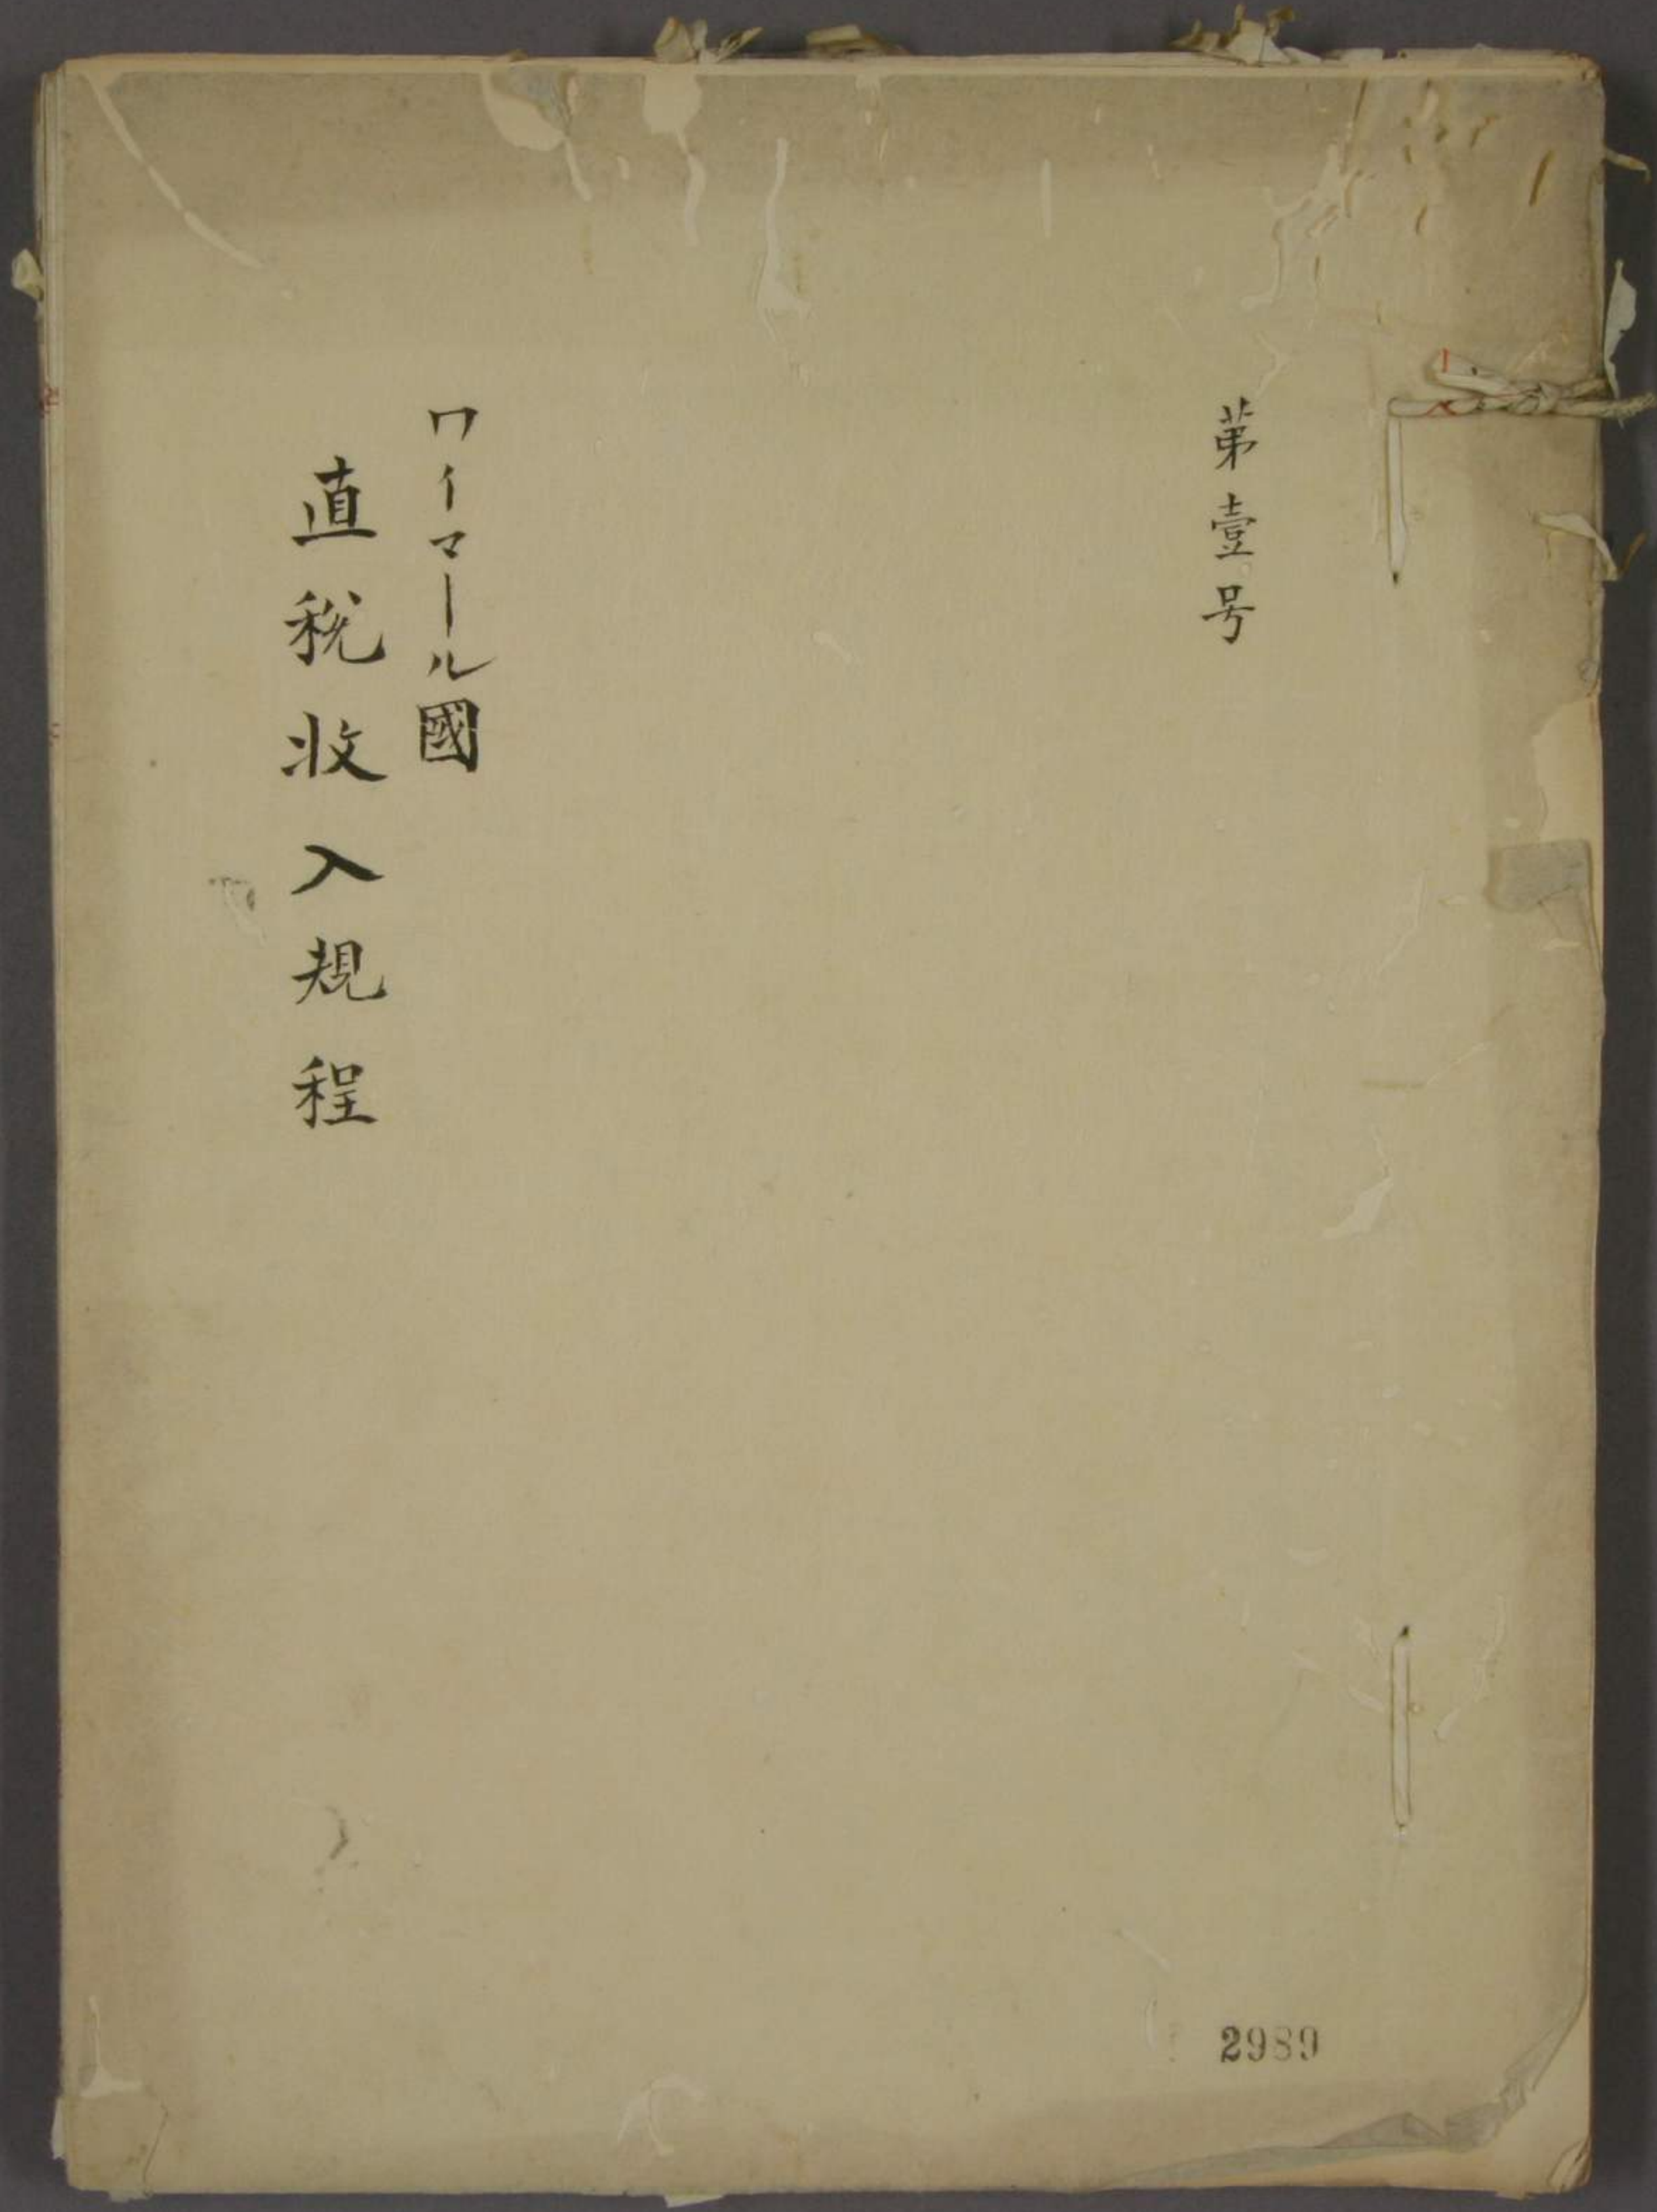 第壹号
ワイマール國
直税收入規程
2989